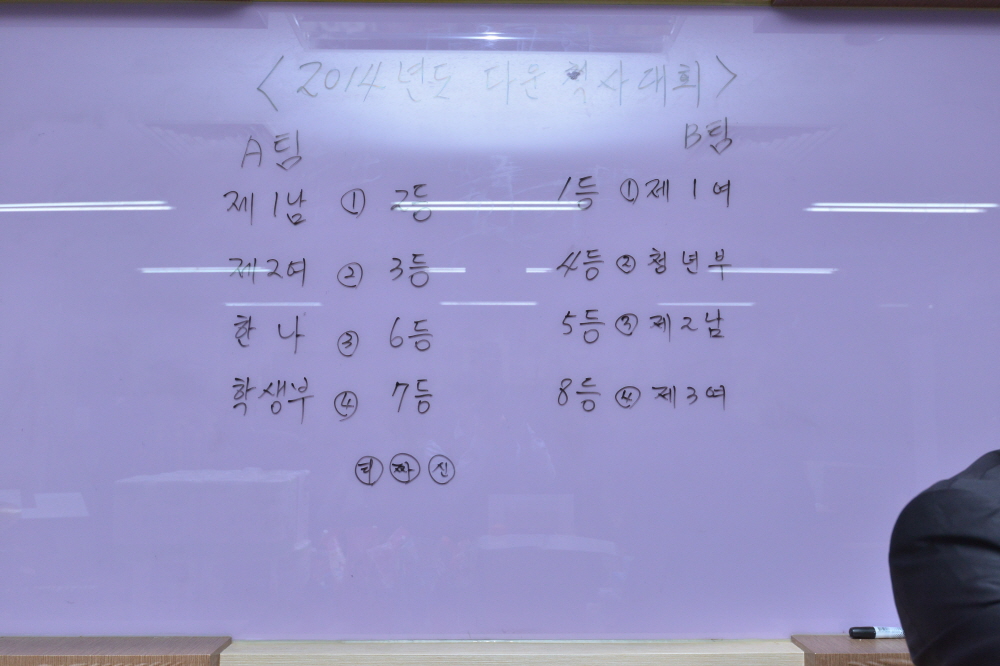 <2014년도 다운 척사대회>
A팀 B팀
제1남 ① 2등 1등 ① 제1여
제2여 ② 3등 4등 ② 청년부
한나 ③ 6등 5등 ③ 제2남
학생부 ④ 7등 8등 ④ 제3여
신